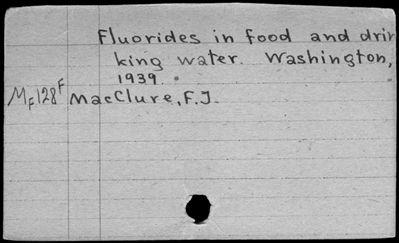 Fluorides in food and drin
king water. Washington,
1939.
MF128F MacClure, F.J.